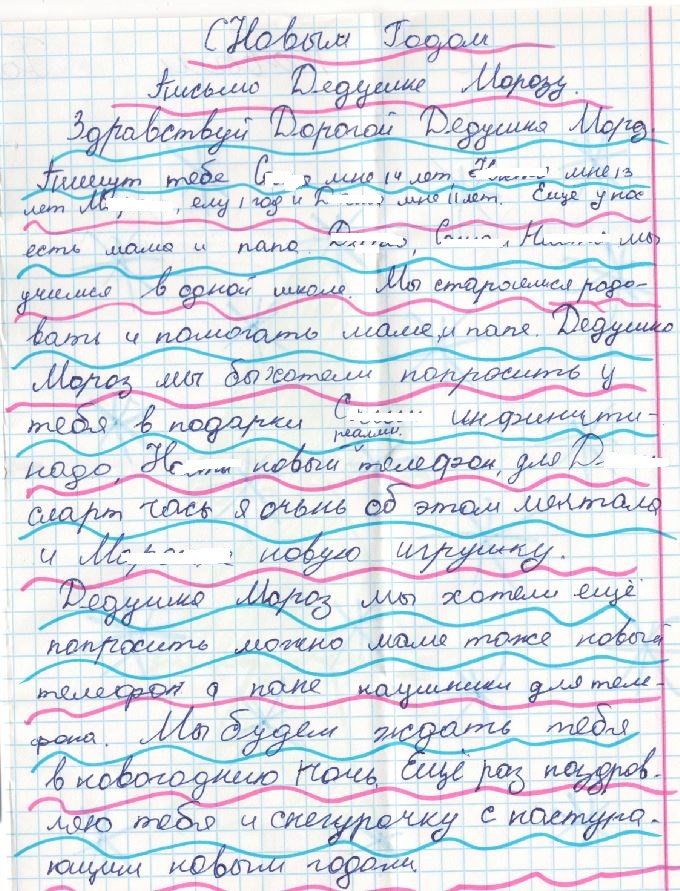 С Новым Годом
Письмо Дедушке Морозу.
Здравствуй Дорогой Дедушка Мороз.
Пишут тебе С я мне 14 лет, мне 13
лет М, ему 1 год и Д мне 11 лет. Ещё у нас
есть мама и папа. мы
учимся в одной школе. Мы стараемся радо-
вать и помогать маме, и папе. Дедушка
Мороз мы бы хотели попросить у
тебя в подарки С инфинити-
реалми.
надо, Н новый телефон, для Д
смарт часы я очень об этом мечтала
и М новую игрушку.
Дедушка Мороз мы хотели ещё
попросить можно маме тоже новый
телефон а папе наушники для теле-
фона. Мы будем ждать тебя
в новогоднию ночь. Ещё раз поздров-
ляю тебя и снегурочку с наступа-
ющим новым годом.